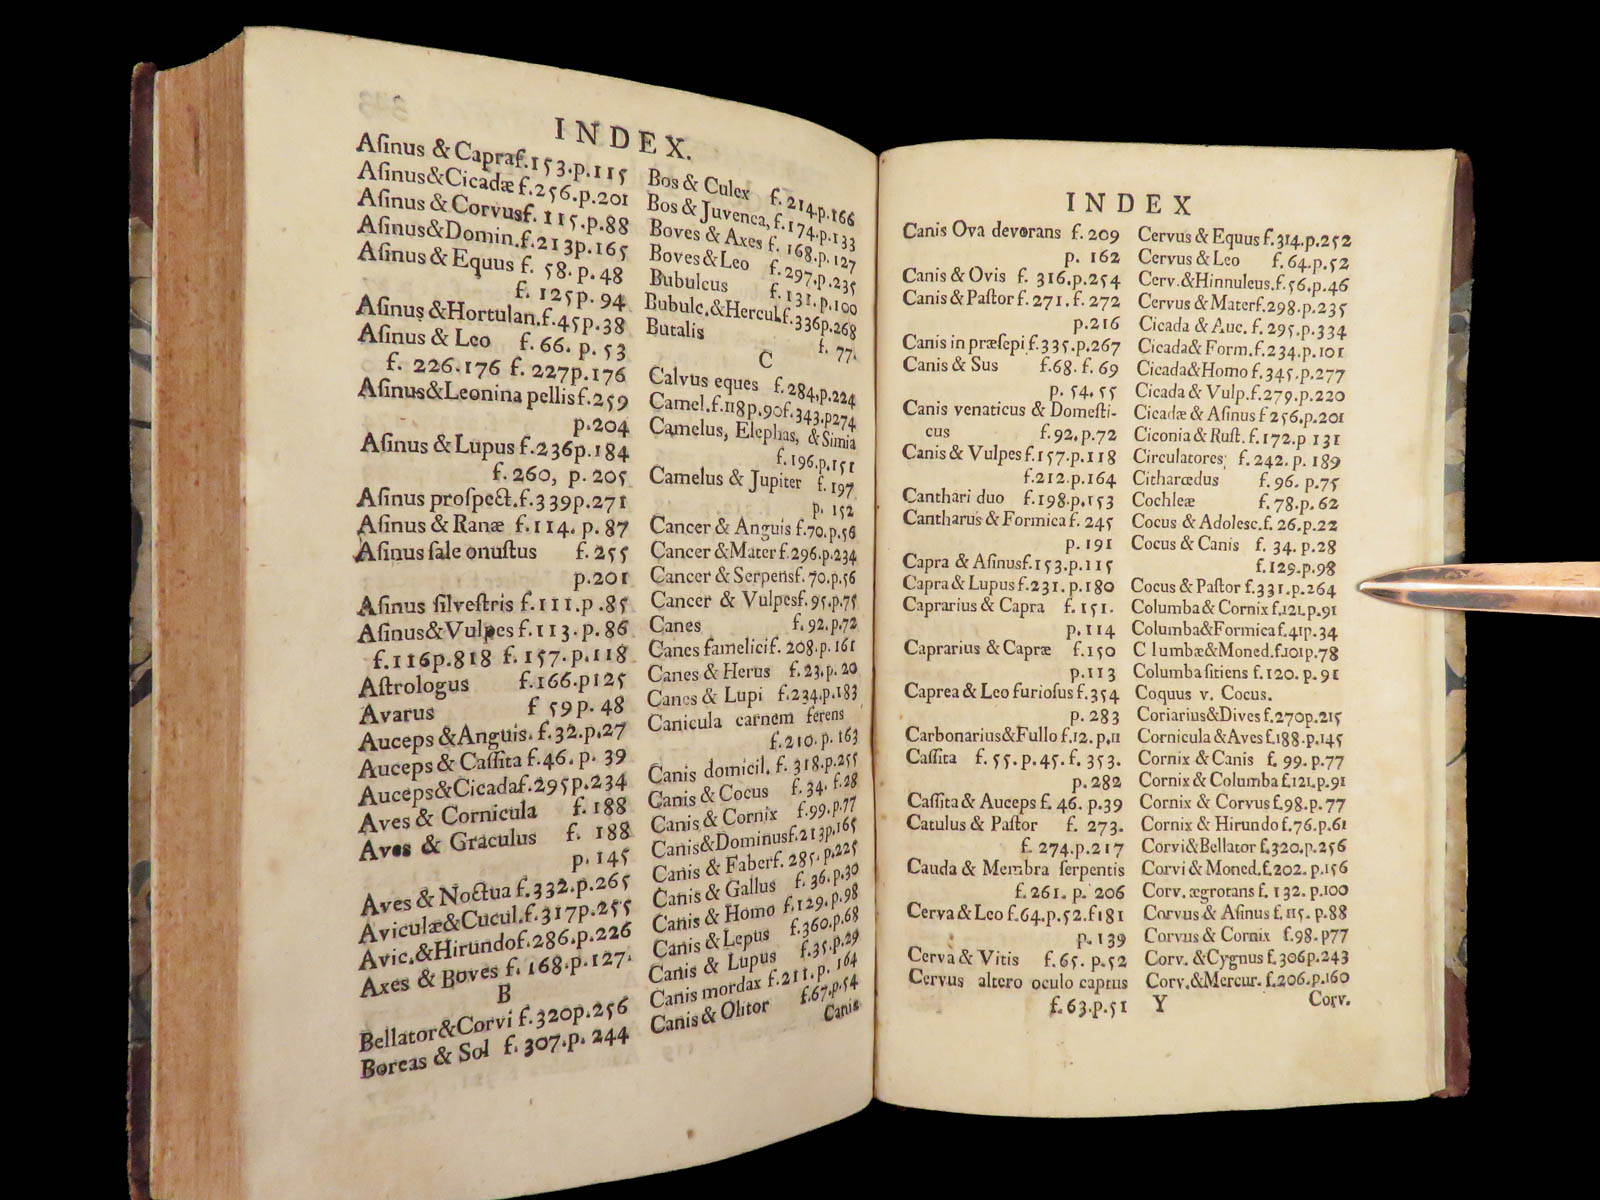 INDEX.
Aſinus & Capraf.153.p.115
Aſinus&Cicadæ f.256.p.201
Aſinus & Corvusf. 115.p.88
Aſinus&Domin.f.213p.165
Aſinus & Equus f. 58.p.48
f. 125p. 94
Aſinus &Hortulan.f.45p.38
Aſinus & Leo f. 66. p. 53
f. 226.176 f. 227p.176
Aſinus&Leonina pellis f.259
p.204
Aſinus & Lupus f.236p.184
f. 260, p. 205
Aſinus proſpect.f.339p.271
Aſinus & Ranæ f.114. p. 87
Aſinus ſale onuſtus f. 255
p.201
Aſinus ſilveſtris f.111.p.85
Aſinus&Vulpes f.113.p.86
f.116p.818 f. 157.p.118
Aſtrologus f.166.p125
Avarus f 59p. 48
Auceps &Anguis. f.32.p.27
Auceps & Caſſita f.46.p. 39
Auceps&Cicadaf.295p.234
Aves & Cornicula f. 188
Aves & Graculus f. 188
p. 145
Aves & Noctua f.332.p.265
Aviculæ&Cucul.f.317p.255
Avic.&Hirundof.286.p.226
Axes & Boves f. 168.p.127.
B
Bellator&Corvi f.320p.256
Boreas & Sol f. 307.p. 244
Bos & Culex f. 214.p.166
Bos & Juvenca, f.174.p.133
Boves & Axes f. 168.p. 127
Boves & Leo f. 297.p.235
Bubulcus f. 131.p.100
Bubulc.&Hercul.f.336p.268
Butalis f. 77.
C
Calvus eques f. 284,p.224
Camel.f.118p.90f.343.p274
Camelus, Elephas, & Simia
f.196.p.151
Camelus & Jupiter f. 197
p. 152
Cancer & Anguis f.70.p.56
Cancer &Mater f.296.p.234
Cancer & Serpensf. 70.p.56
Cancer & Vulpesf.95.p.75
Canes f. 92.p.72
Canes famelicif. 208.p. 161
Canes & Herus f. 23.p. 20
Canes & Lupi f.234.p.183
Canicula carnem ferens
f.210. p. 163
Canis domicil. f. 318.p.255
Canis & Cocus f. 34. f.28
Canis & Cornix f.99.p.77
Canis&Dominusf.213p.165
Canis & Faberf. 285.p.225
Canis & Gallus f. 36.p.30
Canis & Homo f.129.p.98
Canis & Lepus f.360.p.68
Canis & Lupus f.35.p.29
Canis mordax f.211.p. 164
Canis & Olitor f.67.p.54
Canis
INDEX
Canis Ova devorans f. 209
p. 162
Canis & Ovis f. 316.p.254
Canis & Paſtor f. 271. f. 272
p.216
Canis in præſepi f.335.p.267
Canis & Sus f.68. f. 69
p. 54. 55
Canis venaticus & Domeſti-
cus f.92.p.72
Canis & Vulpes f.157.p.118
f.212.p.164
Canthari duo f.198.p.153
Cantharus & Formica f. 245
p. 191
Capra & Aſinusf.153.p.115
Capra & Lupus f.231.p.180
Caprarius & Capra f. 151.
p. 114
Caprarius & Capræ f.150
p.113
Caprea & Leo furioſus f.354
p. 283
Carbonarius&Fullo f.12. p.11
Caſſita f. 55. p.45. f. 353.
p.282
Caſſita & Auceps f. 46. p.39
Catulus & Paſtor f. 273.
f. 274.p.217
Cauda & Membra ſerpentis
f.261. p. 206
Cerva & Leo f.64.p.52.f181
p. 139
Cerva & Vitis f. 65. p.52
Cervus altero oculo captus
f.63.p.51
Cervus & Equus f.314.p.252
Cervus & Leo f.64.p.52
Cerv.&Hinnuleus.f.56.p.46
Cervus & Materf.298.p.235
Cicada & Auc. f. 295.p.334
Cicada& Form.f.234.p.101
Cicada&Homo f.345.p.277
Cicada & Vulp.f.279.p.220
Cicadæ & Aſinus f 256.p.201
Ciconia & Ruſt. f.172.p 131
Circulatores; f. 242. p. 189
Citharœdus f. 96. p.75
Cochleæ f.78.p.62
Cocus & Adoleſc.f. 26.p.22
Cocus & Canis f. 34. p.28
f.129.p.98
Cocus & Paſtor f.331.p.264
Columba & Cornix f.121.p.91
Columba&Formica f.41p.34
C lumbæ&Moned.f.101p.78
Columba ſitiens f.120. p. 91
Coquus v. Cocus.
Coriarius&Dives f.270p.215
Cornicula&Aves f.188.p.145
Cornix & Canis f. 99. p.77
Cornix & Columba f.121.p.91
Cornix & Corvus f.98.p.77
Cornix & Hirundo f.76.p.61
Corvi&Bellator f.320.p.256
Corvi & Moned.f.202. p.156
Corv. ægrotans f. 132. p.100
Corvus & Aſinus f. 115. p.88
Corvus & Cornix f.98.p77
Corv. &Cygnus f.306p.243
Corv.&Mercur. f.206.p.160
Y
Corv.